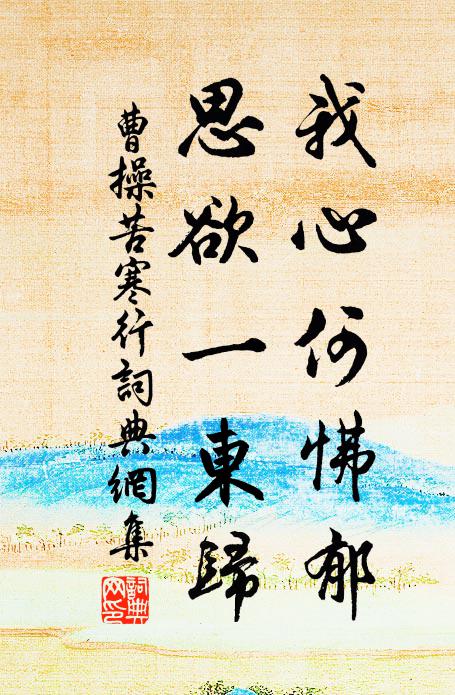 我心何怫郁
思欲一東歸
曹操苦寒行詞典網集
詞典網印